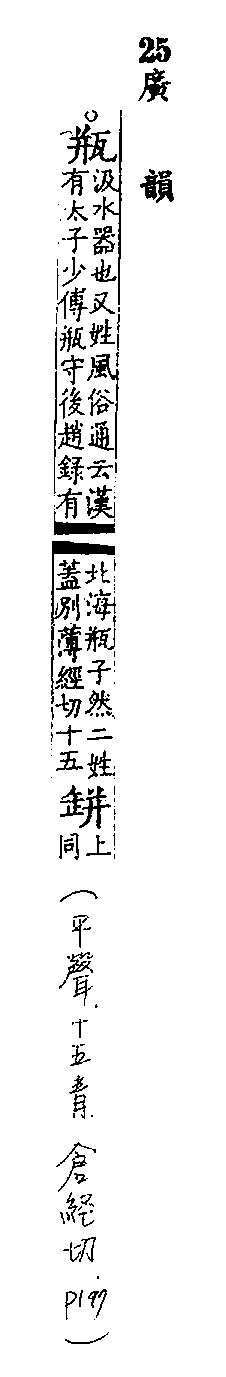 25 廣韻
瓶汲水器也又姓風俗通云漢
有太子少傅瓶守後趙錄有
北海瓶子然二姓
蓋別薄經切十五
缾上
同
(平聲十五青 倉經切 P197)